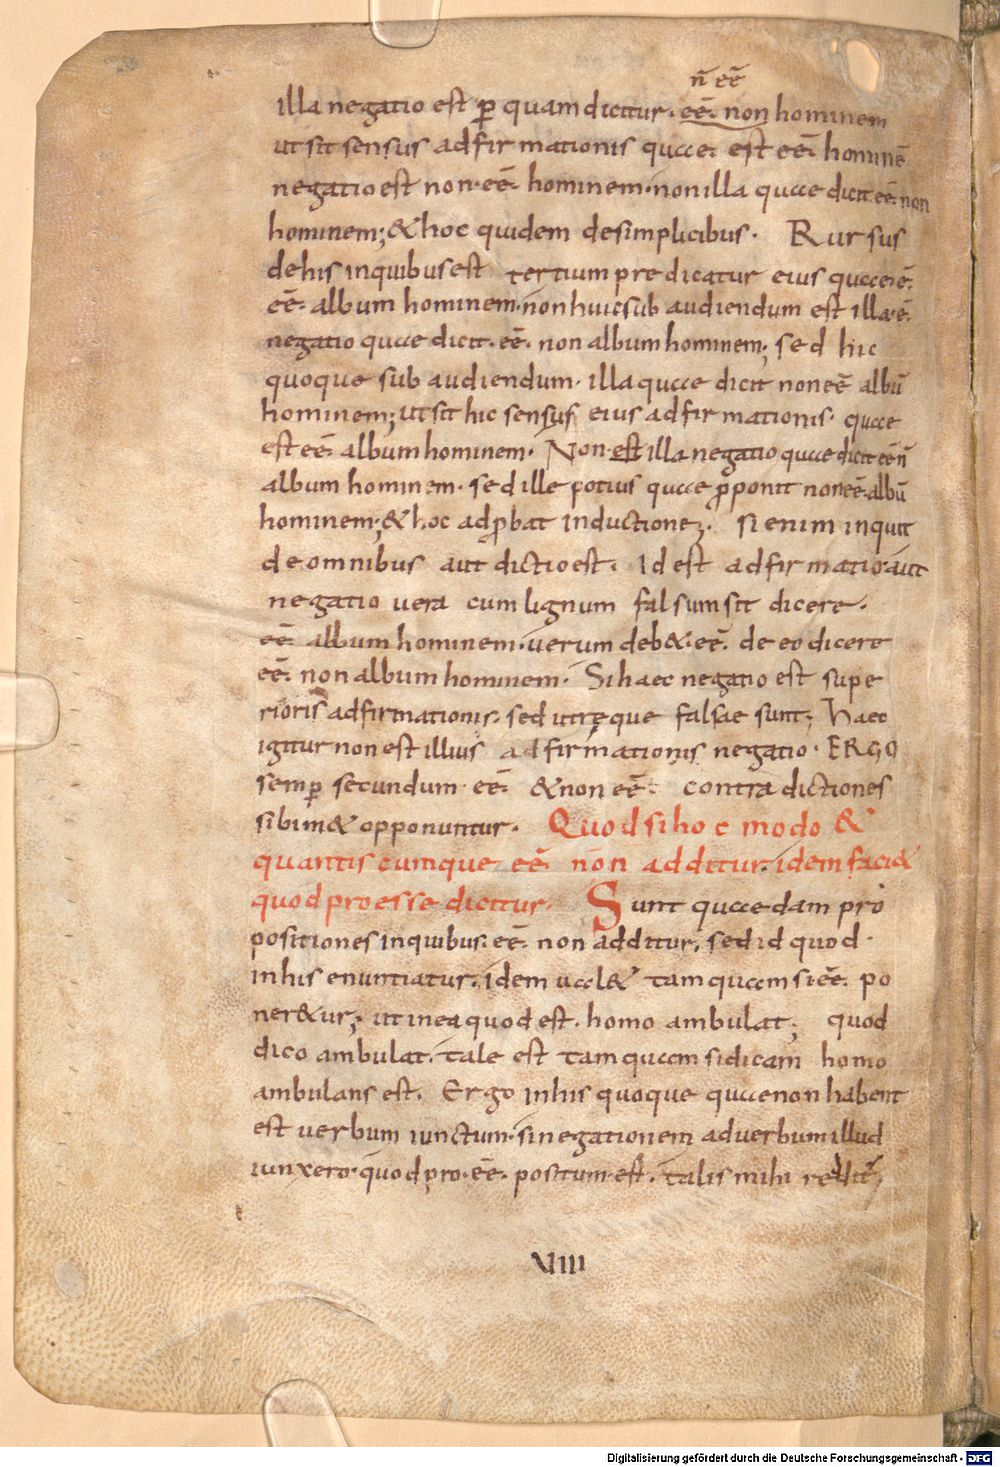 n̄ eē
illa negatio est ꝑ quam dicitur. eē. non hominem
ut sit sensus adfirmationis quae. est eē. hominē
negatio est non. eē. hominem. non illa quae dicit eē. non
hominem; & hoc quidem desimplicibus. Rursus
dehis inquibus est tertium predicatur eius quae. ē.
eē. album hominem. non huic sub audiendum est illa. ē.
negatio quae dicit. eē. non album hominem; sed hic
quoque sub audiendum. illa quae dicit non eē albū
hominem; ut sit hic sensus eius adfirmationis. quae
est eē. album hominem. Non. est illa negatio quae dicit eē n̄
album hominem. sed ille potius quae ꝓponit non eē. albū
hominem; & hoc adꝓbat inductione;. si enim inquit
de omnibus aut dictio est. Id est adfirmatio. aut
negatio vera cum lignum falsum sit dicere.
eē. album hominem. verum deb&. eē. de eo dicere
eē. non album hominem. Si haec negatio est supe
rioris adfirmationis. sed utręque falsae sunt; Haec
igitur non est illius adfirmationis negatio. ERGO
semꝑ secundum. eē. & non eē. contra dictiones
sibim& opponuntur. Quod si hoc modo &
quantis cumque eē. non additur. idem faci&
quod pro esse dicitur. Sunt quaedam pro
positiones inquibus. eē. non additur, sed id quod.
in his enuntiatur. idem ual& tamquam si eē. po
ner&ur;. ut in ea quod est. homo ambulat; quod
dico ambulat. tale est tamquam si dicam homo
ambulans est. Ergo in his quoque quae non habent
est verbum iunctum. si negationem ad verbum illud
iunxero. quod pro. eē. positum. est. talis mihi
VIII
Digitalisierung gefördert durch die Deutsche Forschungsgemeinschaft - DFG